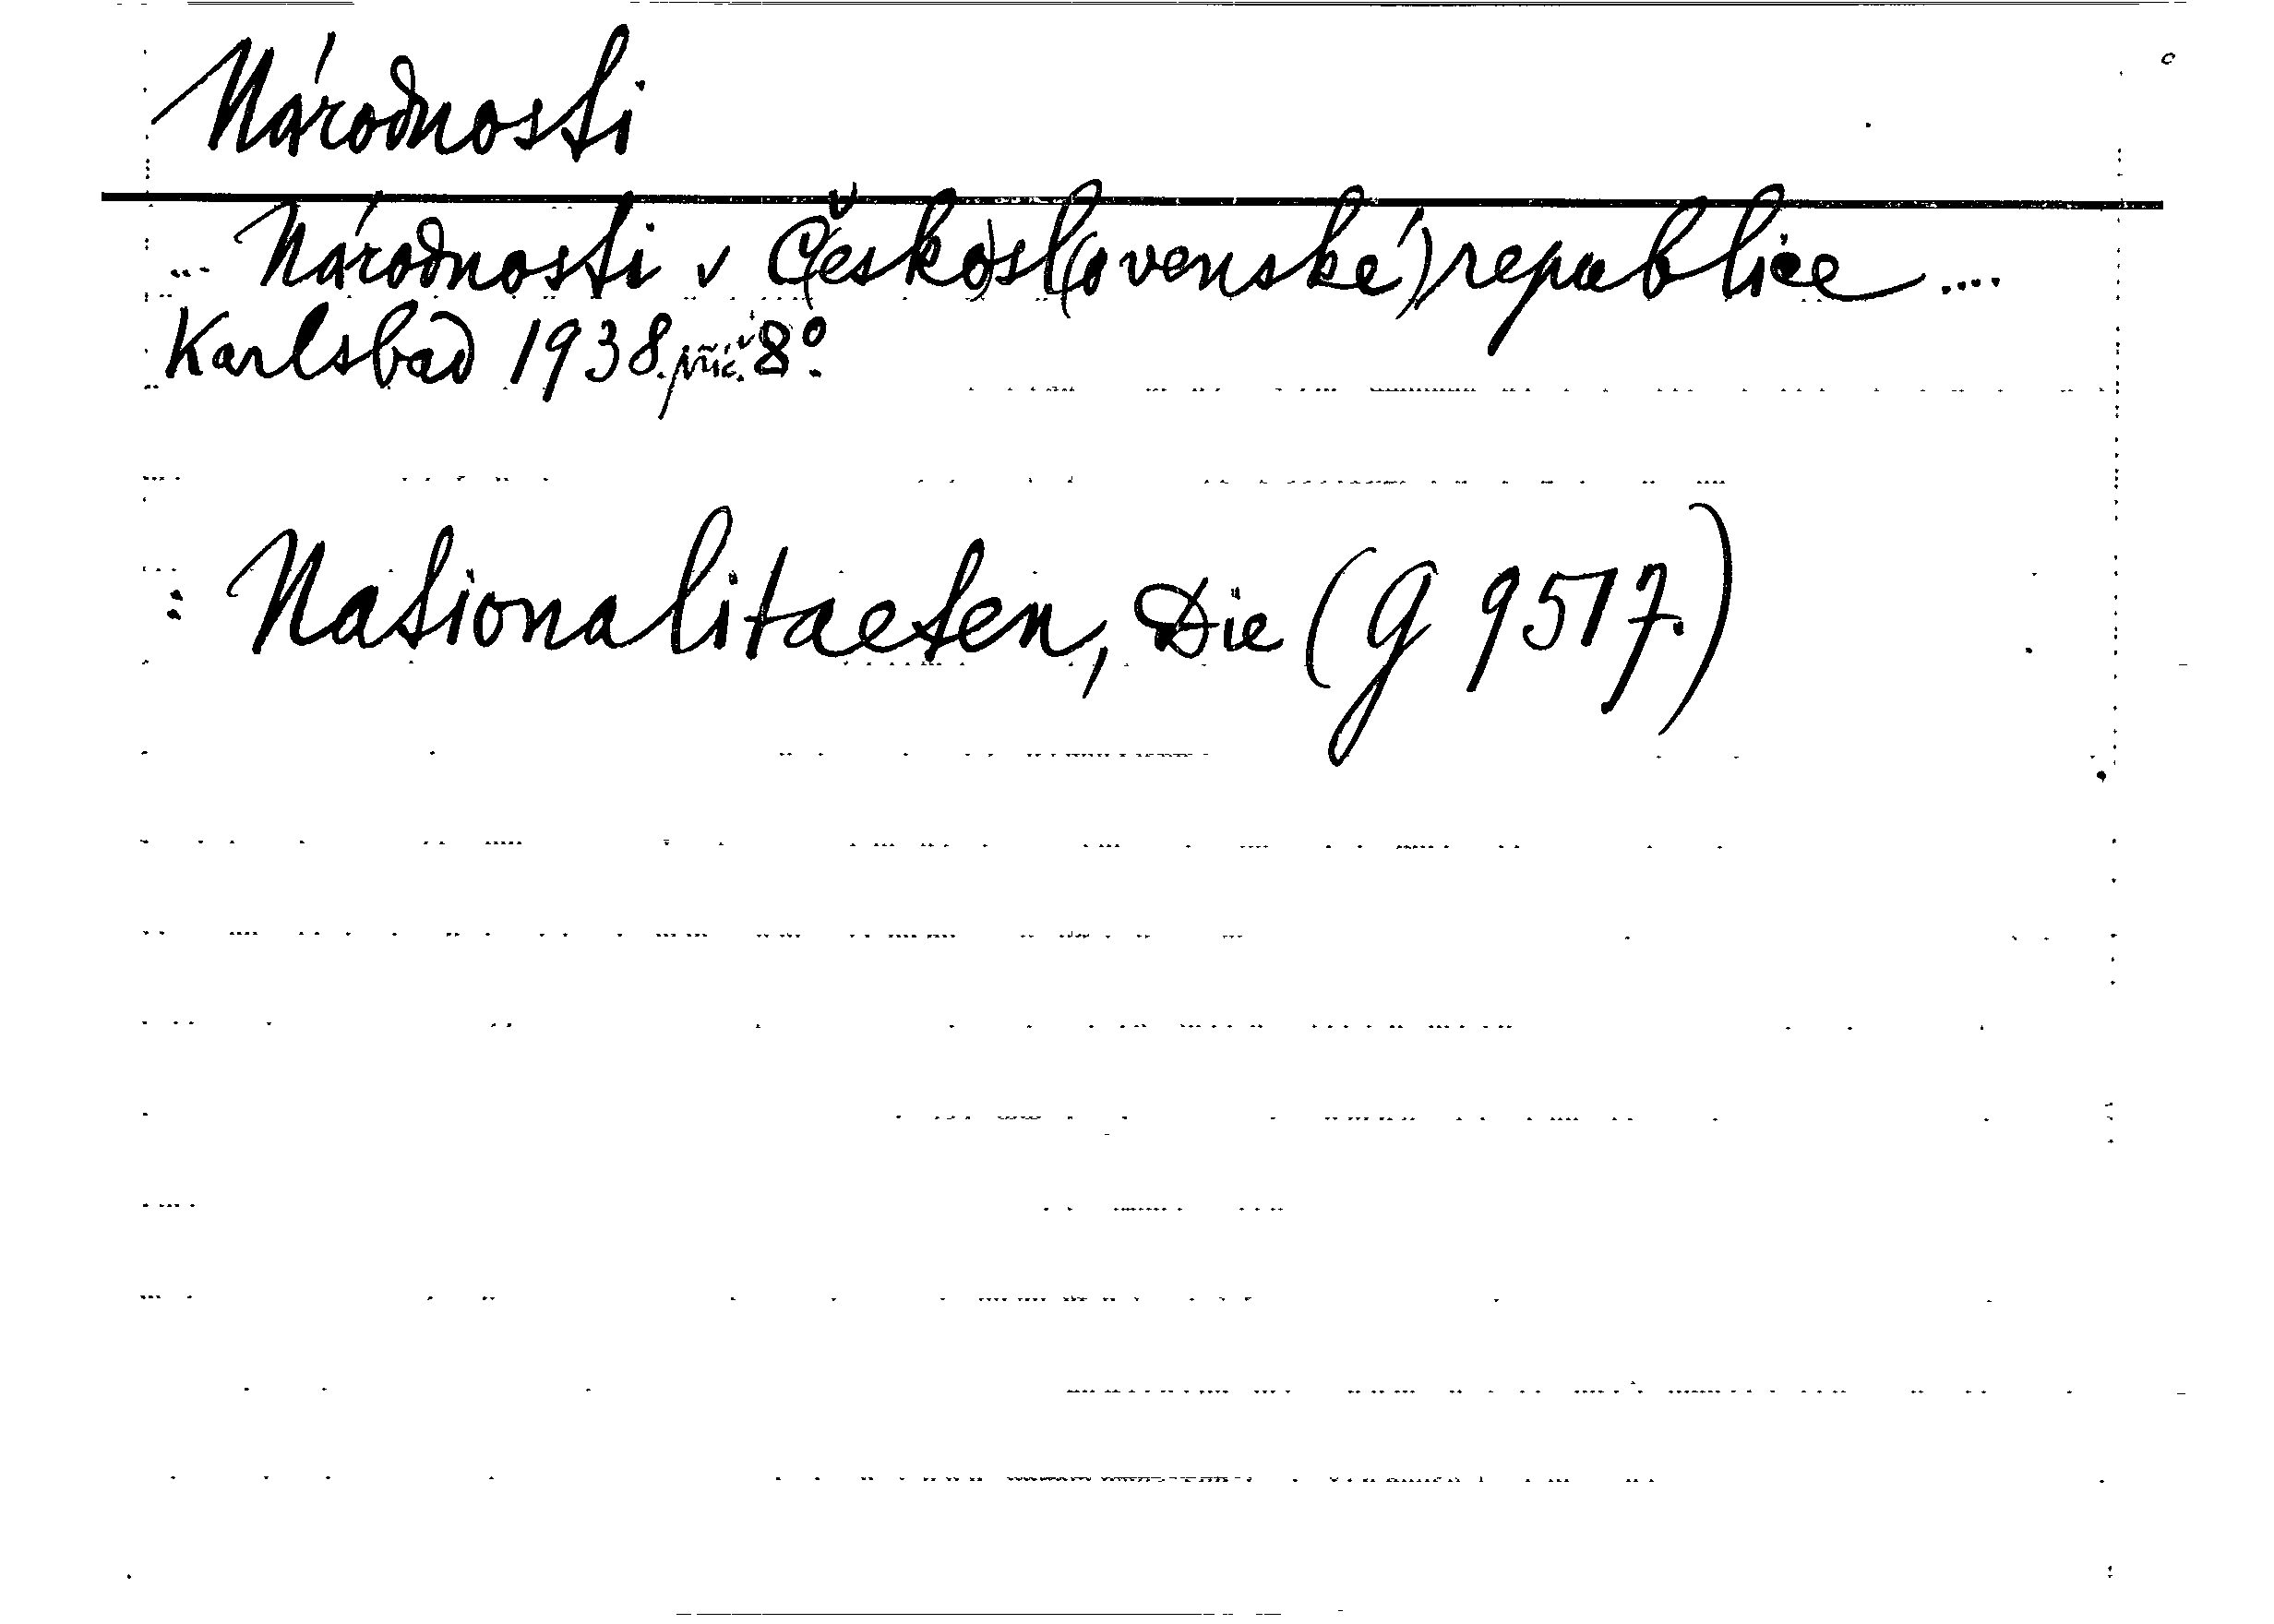 Národnosti
... Národnosti v Č(esko)sl(ovenské) republice ....
Karlsbad 1938. příč. 8°.
: Nationalitaeten, Die (G 9517.)